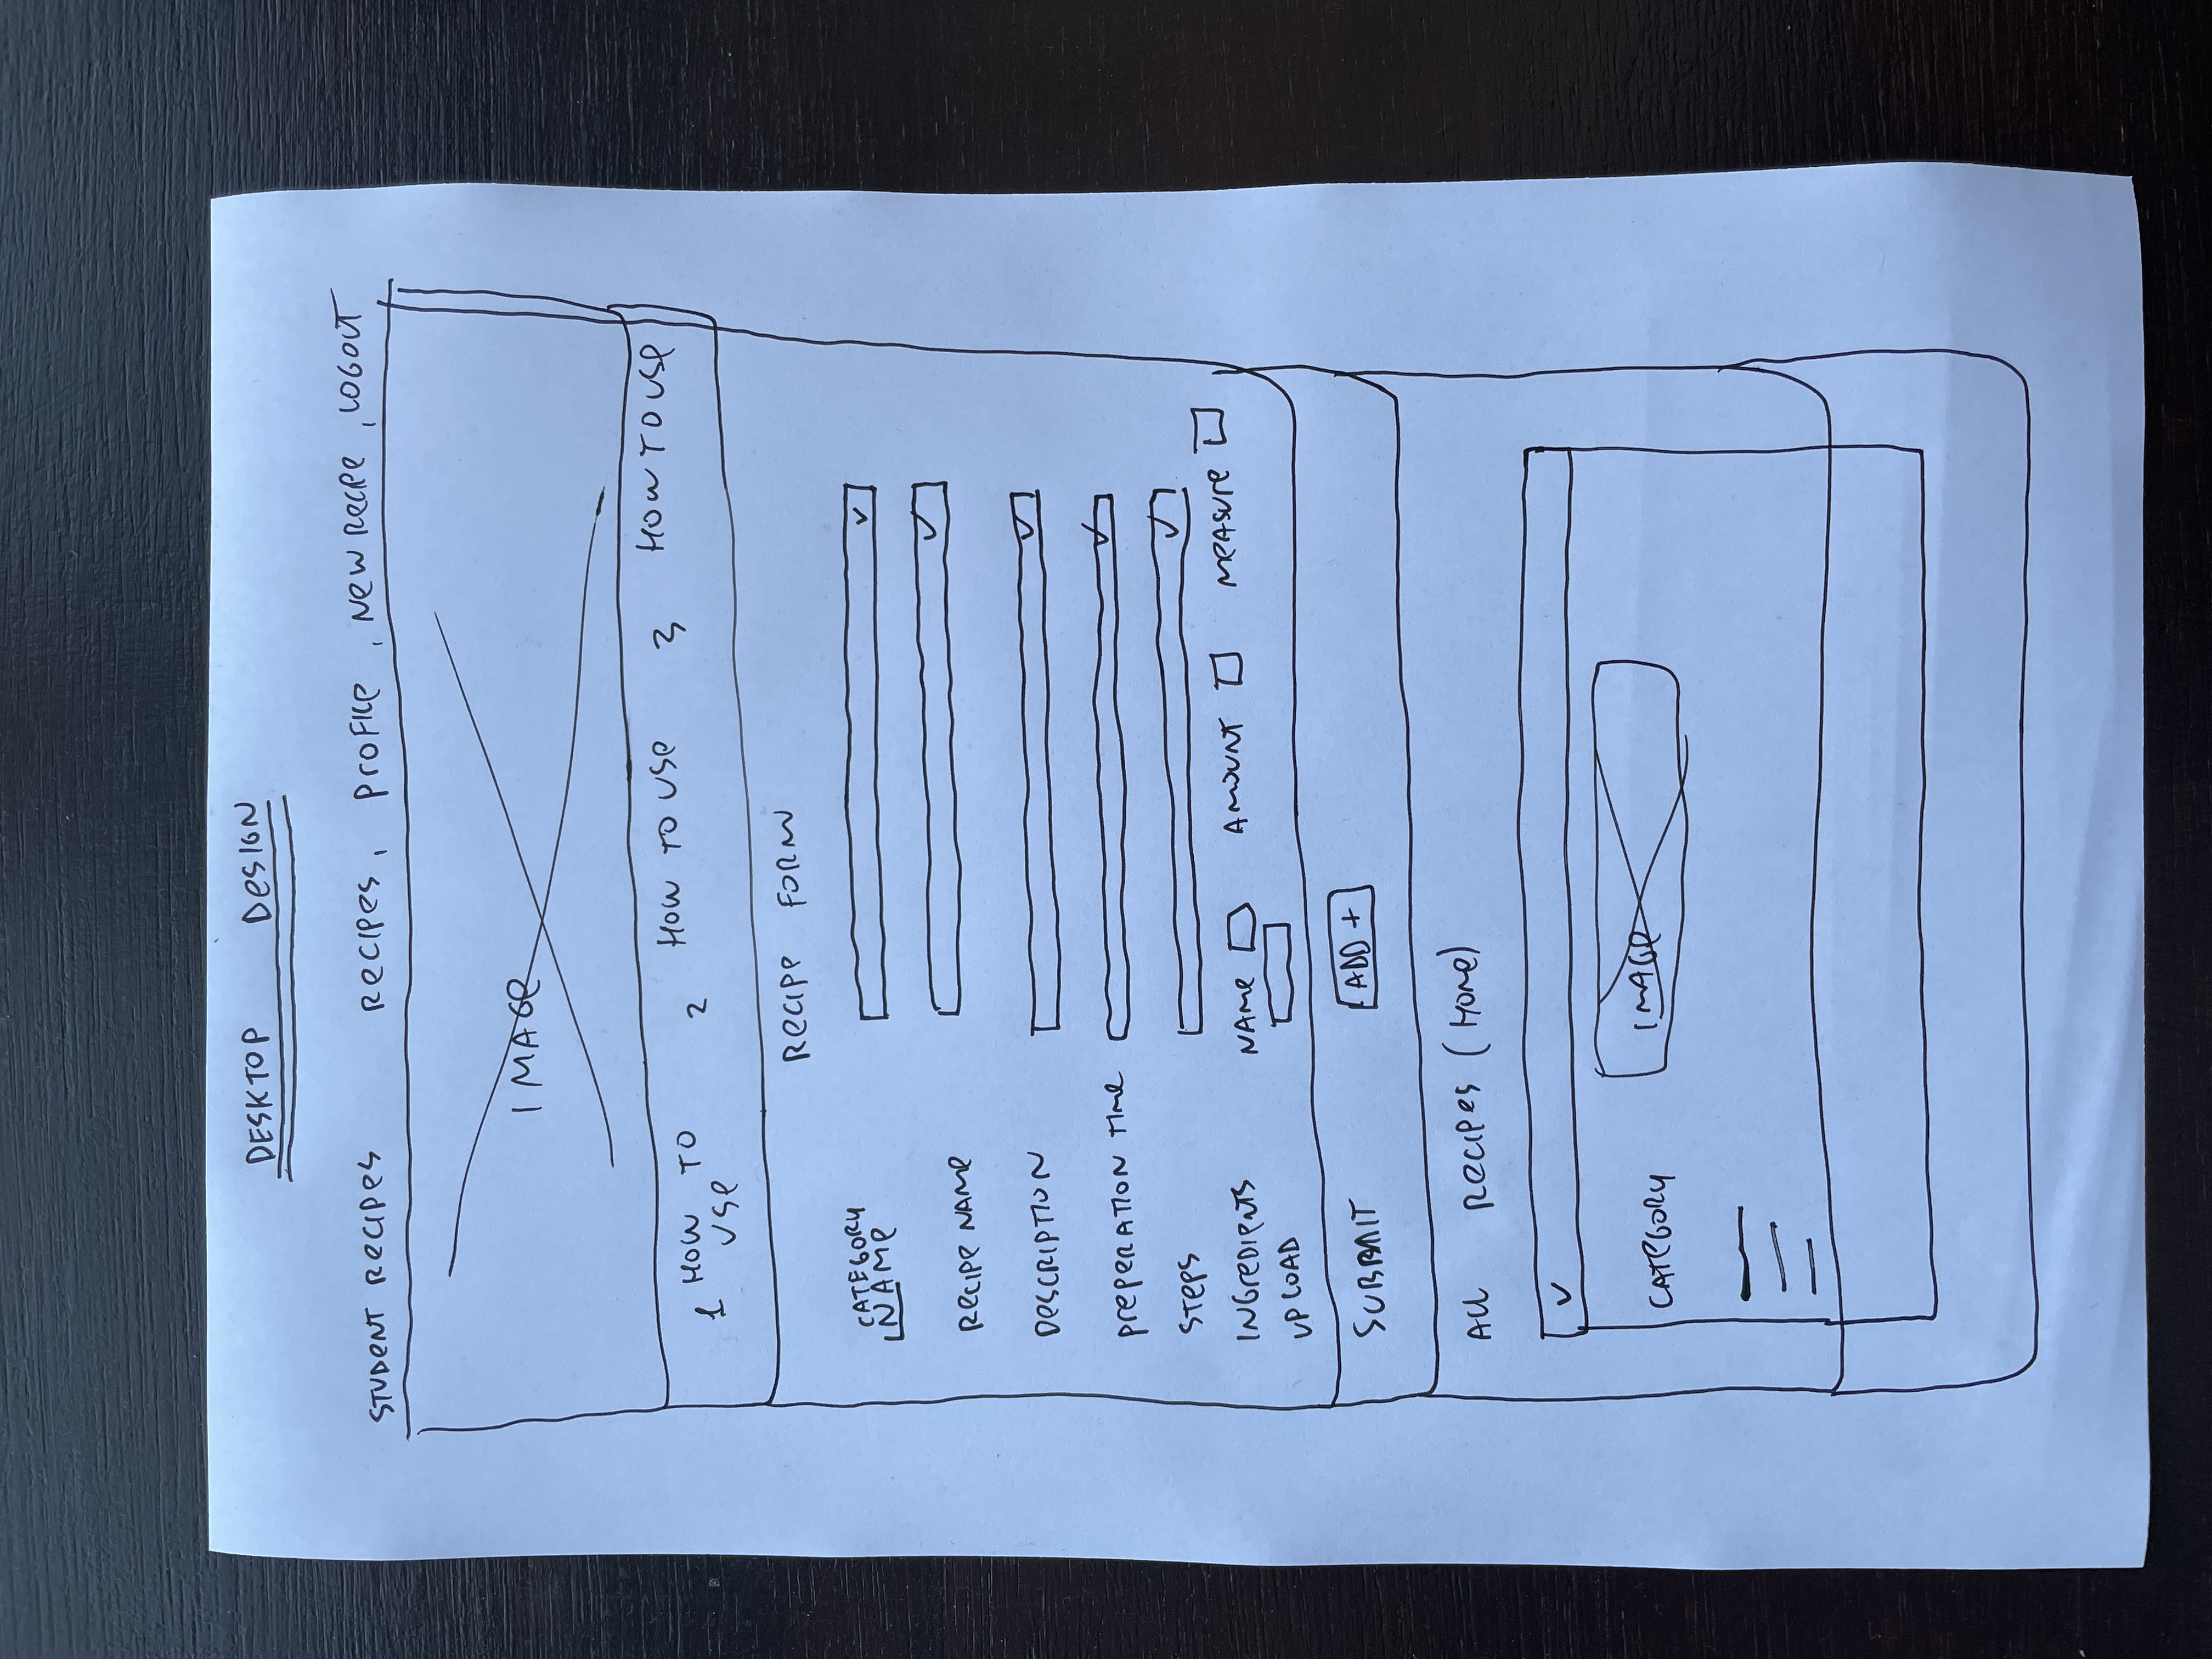 DESKTOP DESIGN
STUDENT RECIPES RECIPES, PROFILE, NEW RECIPE, LOGOUT
IMAGE
1 HOW TO USE 2 HOW TO USE 3 HOW TO USE
RECIPE FORM
CATEGORY
NAME
RECIPE NAME
DESCRIPTION
PREPERATION TIME
STEPS
INGREDIENTS NAME AMOUNT MEASURE
UPLOAD
SUBMIT ADD +
ALL RECIPES (HOME)
CATEGORY IMAGE